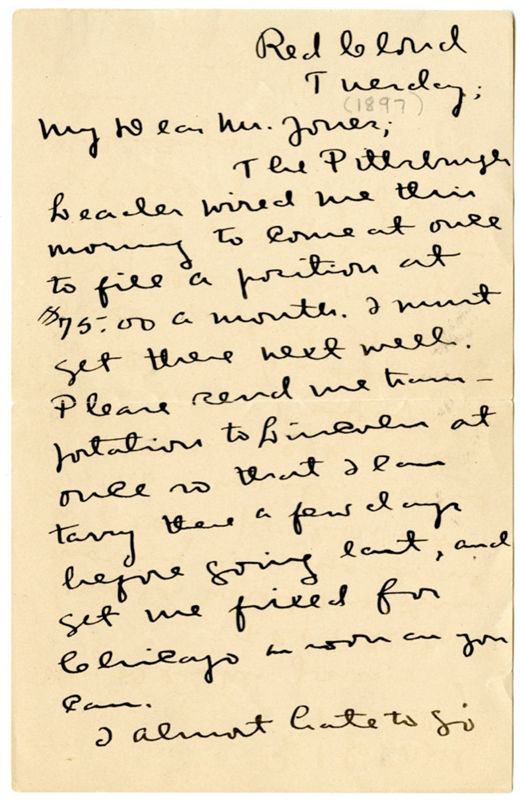 Red Cloud
Tuesday;
(1897)
My Dear Mr. Jones;
The Pittsburgh
Leader wired me this
morning to come at once
to fill a position at
$75.00 a month. I must
get there next week.
Please send me trans-
portation to Lincoln at
once so that I can
tarry there a few days
before going east, and
get me fixed for
Chicago as soon as you
can.
I almost hate to go